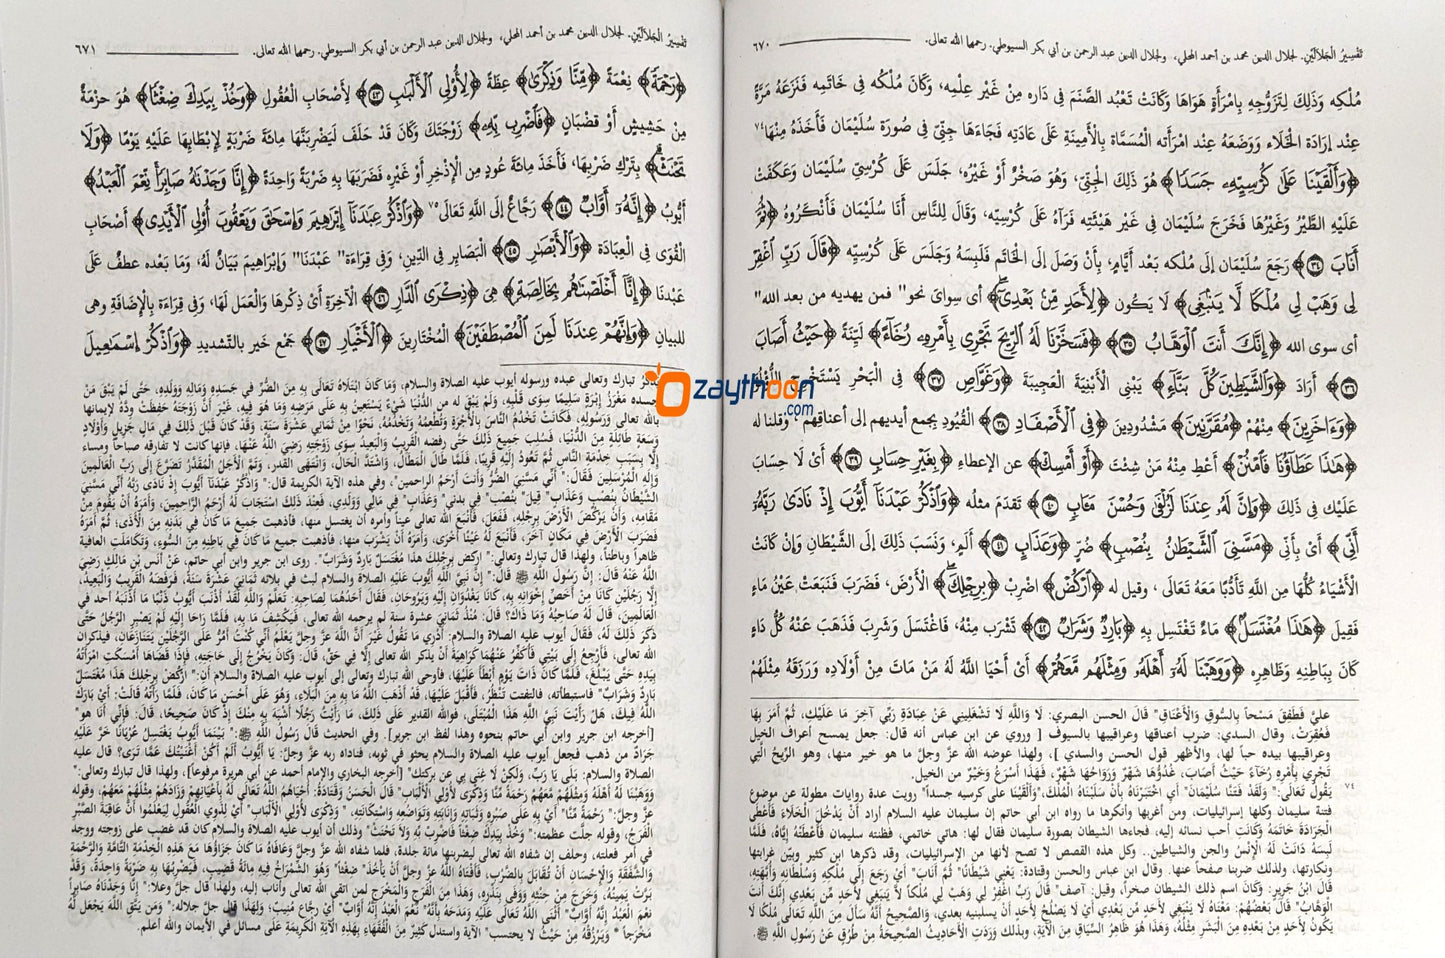 تَفْسِيرُ الْجَلَالَيْنِ. لجلال الدين محمد بن أحمد المحلي، ولجلال الدين عبد الرحمن بن أبي بكر السيوطي. رحمهما الله تعالى. ٦٧٠
مُلْكِه وَذَلِكَ لِتَزَوُّجِهِ بِامْرَأَةٍ هَوَاهَا وَكَانَتْ تَعْبُد الصَّنَمَ فِى دَاره مِنْ غَيْر عِلْمِه، وَكَانَ مُلْكُه فِي خَاتَمِه فَنَزَعَهُ مَرَّةً
عِنْد إرَادَة الْخَلَاء وَوَضَعَهُ عِنْد امْرَأَته الْمُسَمَّاة بِالْأَمِينَةِ عَلَى عَادَتِه فَجَاءَهَا جِنِّىّ فِى صُورَة سُلَيْمَان فَأَخَذَهُ مِنْهَا٧٤
﴿وَأَلْقَيْنَا عَلَىٰ كُرْسِيِّهِۦ جَسَدًا﴾ هُوَ ذَلِكَ الْجِنِّىّ، وَهُوَ صَخْرٌ أَوْ غَيْرُه، جَلَسَ عَلَى كُرْسِىّ سُلَيْمَان وَعَكَفَتْ
عَلَيْهِ الطَّيْرُ وَغَيْرُهَا فَخَرَجَ سُلَيْمَان فِى غَيْر هَيْئَتِه فَرَآهُ عَلَى كُرْسِيّه، وَقَالَ لِلنَّاسِ أَنَا سُلَيْمَان فَأَنْكَرُوهُ ﴿ثُمَّ
أَنَابَ ٣٤﴾ رَجَعَ سُلَيْمَان إلَى مُلْكه بَعْد أَيَّامٍ، بِأَنْ وَصَلَ إلَى الْخَاتَم فَلَبِسَهُ وَجَلَسَ عَلَى كُرْسِيِّه ﴿قَالَ رَبِّ ٱغْفِرْ
لِى وَهَبْ لِى مُلْكًا لَّا يَنۢبَغِى﴾ لَا يَكُون ﴿لِأَحَدٍ مِّنۢ بَعْدِىٓ﴾ أى سِوَاىَ نحو" فمن يهديه من بعد الله"
أى سوى الله ﴿إِنَّكَ أَنتَ ٱلْوَهَّابُ ٣٥﴾ ﴿فَسَخَّرْنَا لَهُ ٱلرِّيحَ تَجْرِى بِأَمْرِهِۦ رُخَآءً﴾ لَيِّنَةً ﴿حَيْثُ أَصَابَ
٣٦﴾ أَرَادَ ﴿وَٱلشَّيَٰطِينَ كُلَّ بَنَّآءٍ﴾ يَبْنِى الْأَبْنِيَةَ الْعَجِيبَةَ ﴿وَغَوَّاصٍ ٣٧﴾ فِى الْبَحْرِ يَسْتَخْرِجُ اللُّؤْلُؤَ
﴿وَءَاخَرِينَ﴾ مِنْهُمْ ﴿مُقَرَّنِينَ﴾ مَشْدُودِينَ ﴿فِى ٱلْأَصْفَادِ ٣٨﴾ الْقُيُودِ بِجمع أيديهم إلى أعناقهم، وقلنا له
﴿هَٰذَا عَطَآؤُنَا فَٱمْنُنْ﴾ أَعْطِ مِنْهُ مَنْ شِئْتَ ﴿أَوْ أَمْسِكْ﴾ عن الإعطاء ﴿بِغَيْرِ حِسَابٍ ٣٩﴾ أَىْ لَا حِسَابَ
عَلَيْك فِى ذَلِكَ ﴿وَإِنَّ لَهُۥ عِندَنَا لَزُلْفَىٰ وَحُسْنَ مَـَٔابٍ ٤٠﴾ تَقَدَمَ مثلُه ﴿وَٱذْكُرْ عَبْدَنَآ أَيُّوبَ إِذْ نَادَىٰ رَبَّهُۥٓ
أَنِّى﴾ أَىْ بِأَنّى ﴿مَسَّنِىَ ٱلشَّيْطَٰنُ بِنُصْبٍ﴾ ضُرّ ﴿وَعَذَابٍ ٤١﴾ أَلَم، وَنَسَبَ ذَلِكَ إلَى الشَّيْطَانِ وَإِنْ كَانَتْ
الْأَشْيَاءُ كُلُّهَا مِن اللَّهِ تَأَدُّبًا مَعَهُ تَعَالَى ، وقيل له ﴿ٱرْكُضْ﴾ اضْرِبْ ﴿بِرِجْلِكَ﴾ الْأَرْضَ، فَضَرَبَ فَنَبَعَتْ عَيْنُ مَاءٍ
فَقِيلَ ﴿هَٰذَا مُغْتَسَلٌۢ﴾ مَاءٌ تَغْتَسِل بِهِ ﴿بَارِدٌ وَشَرَابٌ ٤٢﴾ تَشْرَب مِنْهُ، فَاغْتَسَلَ وَشَرِبَ فَذَهَبَ عَنْهُ كُلُّ دَاءٍ
كَانَ بِبَاطِنِهِ وَظَاهِرِه ﴿وَوَهَبْنَا لَهُۥٓ أَهْلَهُۥ وَمِثْلَهُم مَّعَهُمْ﴾ أَىْ أَحْيَا اللَّهُ لَهُ مَنْ مَاتَ مِنْ أَوْلَاده وَرَزَقَهُ مِثْلَهُمْ
عليَّ فَطَفِقَ مَسْحاً بِالسُّوقِ وَالْأَعْنَاقِ" قَالَ الحسن البصري: لَا وَاللَّهِ لَا تَشْغَلِينِي عَنْ عِبَادَةِ رَبِّي آخِرَ مَا عَلَيْكِ، ثُمَّ أَمَرَ بِهَا
فَعُقِرَتْ، وقال السدي: ضرب أعناقها وعراقيبها بالسيوف [ وروي عن ابن عباس أنه قال: جعل يمسح أعراف الخيل
وعراقيبها بيده حباً لها، والأظهر قول الحسن والسدي ]، ولهذا عوضه الله عزَّ وجلَّ ما هو خير منها، وهو الرِّيحَ الَّتِي
تَجْرِي بِأَمْرِهِ رُخَآءً حَيْثُ أَصَابَ، غُدُوُّهَا شَهْرٌ وَرَوَاحُهَا شَهْرٌ، فَهَذَا أَسْرَعُ وَخَيْرٌ من الخيل.
٧٤ يَقُولُ تَعَالَى:" وَلَقَدْ فَتَنَّا سُلَيْمَانَ" أَيِ اخْتَبَرْنَاهُ بِأَنْ سَلَبْنَاهُ الْمُلْكَ،"وَأَلقَيْنا على كرسيه جسداً" رويت عدة روايات مطولة عن موضوع
فتنة سليمان وكلها إسرائيليات، ومن أغربها وأنكرها ما رواه ابن أبي حاتم إن سليمان عليه السلام أراد أَنْ يَدْخُلَ الْخَلَاءَ فَأَعْطَى
الْجَرَادَةَ خَاتَمَهُ وَكَانَتِ أحب نسائه إليه، فجاءها الشيطان بصورة سليمان فقال لها: هاتي خاتمي، فظنته سليمان فَأَعْطَتْهُ إِيَّاهُ، فَلَمَّا
لَبِسَهُ دَانَتْ لَهُ الْإِنْسُ والجن والشياطين.. وكل هذه القصص لا تصح لأنها من الإسرائيليات، وقد ذكرها ابن كثير وبيّن غرابتها
ونكارتها، ولذلك ضربنا صفحاً عنها. وقال ابن عباس والحسن وقتادة: يَعْنِي شَيْطَانً" ثُمَّ أَنابَ" أَيْ رَجَعَ إِلَى مُلْكِهِ وَسُلْطَانِهِ وَأُبَّهَتِهِ،
قَالَ ابْنُ جَرِيرٍ: وَكَانَ اسم ذلك الشيطان صخراً، وقيل: آصف" قَالَ رَبِّ اغْفِرْ لِي وَهَبْ لِي مُلْكاً لاَّ يَنبَغِي لأَحَدٍ مِّن بَعْدِي إِنَّكَ أَنتَ
الْوَهَّابُ" قَالَ بَعْضُهُمْ: مَعْنَاهُ لَا يَنبَغِي لأَحَدٍ مِّن بَعْدِي أَيْ لَا يَصْلُحُ لِأَحَدٍ أَنْ يسلبنيه بعدي، وَالصَّحِيحُ أَنَّهُ سَأَلَ مِنَ اللَّهِ تَعَالَى مُلْكًا لا
يَكُونُ لِأَحَدٍ مِنْ بَعْدِهِ مِنَ الْبَشَرِ مِثْلُهُ، وَهَذَا هُوَ ظَاهِرُ السِّيَاقِ مِنَ الْآيَةِ، وبذلك وَرَدَتِ الْأَحَادِيثُ الصَّحِيحَةُ مِنْ طُرُقٍ عَنْ رَسُولِ اللَّهِ ﷺ.
تَفْسِيرُ الْجَلَالَيْنِ. لجلال الدين محمد بن أحمد المحلي، ولجلال الدين عبد الرحمن بن أبي بكر السيوطي. رحمهما الله تعالى. ٦٧١
﴿رَحْمَةً﴾ نِعْمَةً ﴿مِّنَّا وَذِكْرَىٰ﴾ عِظَةً ﴿لِأُو۟لِى ٱلْأَلْبَٰبِ ٤٣﴾ لِأَصْحَابِ الْعُقُولِ ﴿وَخُذْ بِيَدِكَ ضِغْثًا﴾ هُوَ حزْمَةٌ
مِنْ حَشِيشٍ أَوْ قضْبَانٍ ﴿فَٱضْرِب بِّهِۦ﴾ زَوْجَتَكَ وَكَانَ قَدْ حَلَفَ لَيَضْرِبَنَّهَا مِائَةَ ضَرْبَةٍ لِإِبْطَائِهَا عَلَيْهِ يَوْمًا ﴿وَلَا
تَحْنَثْ﴾ بِتَرْكِ ضَرْبِهَا، فَأَخَذَ مِائَةَ عُودٍ مِن الْإِذْخِرِ أَوْ غَيْرِهِ فَضَرَبَهَا بِهِ ضَرْبَةً وَاحِدَةً ﴿إِنَّا وَجَدْنَٰهُ صَابِرًا نِّعْمَ ٱلْعَبْدُ﴾
أَيُّوبُ ﴿إِنَّهُۥٓ أَوَّابٌ ٤٤﴾ رَجَّاعٌ إلَى اللَّهِ تَعَالَى٧٥ ﴿وَٱذْكُرْ عِبَٰدَنَآ إِبْرَٰهِيمَ وَإِسْحَٰقَ وَيَعْقُوبَ أُو۟لِى ٱلْأَيْدِى﴾ أَصْحَابِ
الْقُوَى فِى الْعِبَادَة ﴿وَٱلْأَبْصَٰرِ ٤٥﴾ الْبَصَايِرِ فِى الدِّينِ، وَفِى قِرَاءَة" عَبْدنَا" وَإِبْرَاهِيمَ بَيَانٌ لَهُ، وَمَا بَعْده عطفٌ عَلَى
عَبْدنَا ﴿إِنَّآ أَخْلَصْنَٰهُم بِخَالِصَةٍ﴾ هِىَ ﴿ذِكْرَى ٱلدَّارِ ٤٦﴾ الْآخِرَةِ أَىْ ذِكْرِهَا وَالْعَمَلِ لَهَا، وَفِى قِرَاءَة بِالْإِضَافَةِ وهى
للبيان ﴿وَإِنَّهُمْ عِندَنَا لَمِنَ ٱلْمُصْطَفَيْنَ﴾ الْمُخْتَارِينَ ﴿ٱلْأَخْيَارِ ٤٧﴾ جَمْع خَير بالتَّشديدِ ﴿وَٱذْكُرْ إِسْمَٰعِيلَ
يذكر تبارك وتعالى عبده ورسوله أيوب عليه الصلاة والسلام، وَمَا كَانَ ابْتَلَاهُ تَعَالَى بِهِ مِنَ الضُّرِّ فِي جَسَدِهِ وَمَالِهِ وَوَلَدِهِ، حَتَّى لَمْ يَبْقَ مَنْ
جسده مَغْرَزُ إِبْرَةٍ سَلِيمًا سِوَى قَلْبِهِ، وَلَمْ يَبْقَ له من الدُّنْيَا شَيْءٌ يَسْتَعِينُ بِهِ عَلَى مَرَضِهِ وَمَا هُوَ فِيهِ، غَيْرَ أَنَّ زَوْجَتَهُ حَفِظَتْ وِدَّهُ لِإِيمَانِهَا
بالله تعالى وَرَسُولِهِ، فَكَانَتْ تَخْدُمُ النَّاسَ بِالْأُجْرَةِ وَتُطْعِمُهُ وَتَخْدُمُهُ، نَحْوًا مِنْ ثَمَانِي عَشْرَةَ سَنَةً، وَقَدْ كَانَ قَبْلَ ذَلِكَ فِي مَالٍ جَزِيلٍ وَأَوْلَادٍ
وَسَعَةٍ طَائِلَةٍ مِنَ الدُّنْيَا، فَسُلِبَ جَمِيعَ ذَلِكَ حتَّى رفضه القَرِيبُ وَالْبَعِيدُ سِوَى زَوْجَتِهِ رَضِيَ اللَّهُ عَنْهَا، فإنها كانت لا تفارقه صباحاً ومساء
إِلَّا بِسَبَبِ خِدْمَةِ النَّاسِ ثُمَّ تَعُودُ إِلَيْهِ قَرِيبًا، فَلَمَّا طَالَ الْمَطَالُ، وَاشْتَدَّ الْحَالُ، وَانْتَهَى القدر، وَتَمَّ الْأَجَلُ الْمُقَدَّرُ تَضَرَّعَ إِلَى رَبِّ الْعَالَمِينَ
وَإِلَهِ الْمُرْسَلِينَ فَقَالَ:" أَنِّي مَسَّنِيَ الضُّرُّ وَأَنتَ أرْحَمُ الراحمين"، وفي هذه الآية الكريمة قال:" وَاذْكُرْ عَبْدَنَآ أَيُّوبَ إِذْ نَادَى رَبَّهُ أَنِّي مَسَّنِيَ
الشَّيْطَانُ بِنُصْبٍ وَعَذَابٍ" قِيلَ" بِنُصْبٍ" في بدني" وَعَذَابٍ" فِي مَالِي وَوَلَدِي، فعند ذلك استجاب لَهُ أَرْحَمُ الرَّاحِمِينَ، وَأَمَرَهُ أَنْ يَقُومَ مِنْ
مَقَامِهِ، وَأَنْ يَرْكُضَ الْأَرْضَ بِرِجْلِهِ، فَفَعَلَ، فَأَنْبَعَ الله تعالى عيناً وأمره أن يغتسل منها، فأذهبت جَمِيعَ مَا كَانَ فِي بَدَنِهِ مِنَ الْأَذَى، ثُمَّ أَمَرَهُ
فَضَرَبَ الْأَرْضَ فِي مَكَانٍ آخَرَ، فَأَنْبَعَ لَهُ عَيْنًا أُخْرَى، وَأَمَرَهُ أَنْ يَشْرَبَ مِنها، فأذهبت جميع مَا كَانَ فِي بَاطِنِهِ مِنَ السُّوءِ، وَتَكَامَلَتِ العافية
ظاهراً وباطناً، ولهذا قال تبارك وتعالى:" اركض بِرِجْلِكَ هَذَا مُغْتَسَلٌ بَارِدٌ وَشَرَابٌ". روى ابن جرير وابن أبي حاتم، عَنْ أَنَسِ بْنِ مَالِكٍ رَضِيَ
اللَّهُ عَنْهُ قَالَ: إِنَّ رَسُولَ اللَّهِ ﷺ قَالَ:" إِنَّ نَبِيَّ اللَّهِ أَيُّوبَ عَلَيْهِ الصلاة والسلام لبث في بلائه ثَمَانِيَ عَشْرَةَ سَنَةً، فَرَفَضَهُ القَرِيبُ وَالْبَعِيدُ،
إِلَّا رَجُلَيْنِ كَانَا مِنْ أَخَصِّ إِخْوَانِهِ بِهِ، كَانَا يَغْدُوَانِ إِلَيْهِ وَيَرُوحَانِ، فَقَالَ أَحَدُهُمَا لِصَاحِبِهِ: تَعَلَمُ وَاللَّهِ لَقَدْ أَذْنَبَ أيُّوبُ ذَنْبًا مَا أَذْنَبَهُ أحد في
العالمين، قَالَ لَهُ صَاحِبُهُ وَمَا ذَاكَ؟ قَالَ: مُنْذُ ثَمَانِيَ عشرة سنة لم يرحمه الله تعالى، فَيَكْشِفَ مَا بِهِ، فَلَمَّا رَاحَا إِلَيْهِ لَمْ يَصْبِرِ الرَّجُلُ حَتَّى
ذَكَرَ ذَلِكَ لَهُ، فَقَالَ أَيوب عليه الصلاة والسلام: أَدْرِي مَا تَقُولُ غَيْرَ أَنَّ اللَّهَ عزَّ وجلَّ يَعْلَمُ أَنِّي كُنْتُ أَمُرُّ عَلَى الرَّجُلَيْنِ يَتَنَازَعَانِ، فيذكران
الله تعالى، فَأَرْجِعُ إِلَى بَيْتِي فَأُكَفِّرُ عَنْهُمَا كَرَاهِيَةَ أَنْ يذكر الله تعالى إِلَّا فِي حَقٍّ، قَالَ: وَكَانَ يَخْرُجُ إِلَى حَاجَتِهِ، فَإِذَا قَضَاهَا أَمْسَكَتِ امْرَأَتُهُ
بِيَدِهِ حَتَّى يَبْلُغَ، فَلَمَّا كَانَ ذَاتَ يَوْمٍ أَبْطَأَ عَلَيْهَا، فأوحى الله تبارك وتعالى إِلى أيوب عليه الصلاة والسلام أن:" ارْكُضْ بِرِجْلِكَ هَذَا مُغْتَسَلٌ
بَارِدٌ وَشَرَابٌ" فاستبطأته، فالتفتت تَنْظُرُ، فَأَقْبَلَ عَلَيْهَا، قَدْ أَذْهَبَ اللَّهُ مَا بِهِ مِنَ الْبَلَاءِ، وَهُوَ عَلَى أَحْسَنِ مَا كَانَ، فَلَمَّا رَأَتْهُ قَالَتْ: أَيْ بَارَكَ
اللَّهُ فِيكَ، هَلْ رَأَيْتَ نَبِيَّ اللَّهِ هَذَا الْمُبْتَلَى، فوالله القدير على ذَلِكَ، مَا رَأَيْتُ رَجُلًا أَشْبَهَ بِهِ مِنْكَ إِذْ كَانَ صَحِيحًا، قَالَ: فَإِنِّي أَنَا هو"
[أخرجه ابن جرير وابن أبي حاتم بنحوه وهذا لفظ ابن جرير]. وفي الحديث قال رَسُولُ اللَّهِ ﷺ:" بَيْنَمَا أَيُّوبُ يَغْتَسِلُ عُرْيَانًا خَرَّ عَلَيْهِ
جَرَادٌ من ذهب فجعل أيوب عليه الصلاة والسلام يحثو في ثوبه، فناداه ربه عزَّ وجلَّ: يَا أَيُّوبُ أَلَمْ أَكُنْ أَغْنَيْتُكَ عَمَّا تَرَى؟ قال عليه
الصلاة والسلام: بَلَى يَا رَبِّ، وَلَكِنْ لَا غِنَى بِي عَنْ بركتك" [أخرجه البخاري والإمام أحمد عن أبي هريرة مرفوعاً]، ولهذا قال تبارك وتعالى:"
وَوَهَبْنَا لَهُ أَهْلَهُ وَمِثْلَهُمْ مَّعَهُمْ رَحْمَةً مِّنَّا وَذِكْرَى لأُولِي الْأَلْبَابِ" قَالَ الْحَسَنُ وَقَتَادَةُ: أَحْيَاهُمُ اللَّهُ تَعَالَى لَهُ بِأَعْيَانِهِمْ وَزَادَهُمْ مِثْلَهُمْ مَعَهُمْ، وقوله
عزَّ وجلَّ:" رَحْمَةً مِّنَّا" أَيْ بِهِ عَلَى صَبْرِهِ وَثَبَاتِهِ وَإِنَابَتِهِ وَتَوَاضُعِهِ وَاسْتِكَانَتِهِ، " وَذِكْرَى لأُولِي الألْبَاب" أَيْ لِذَوِي الْعُقُولِ لِيَعْلَمُوا أَنَّ عَاقِبَةَ الصَّبْرِ
الْفَرَجُ، وقوله جلَّت عظمته:" وَخُذْ بِيَدِكَ ضِغْثاً فَاضْرِب بِّهِ وَلاَ تَحْنَثْ" وذلك أن أيوب عليه الصلاة والسلام كان قد غضب على زوجته ووجد
في أمر فعلته، وحلف إن شفاه الله تعالى ليضربنها مائة جلدة، فلما شفاه الله عزَّ وجلَّ وَعَافَاهُ مَا كَانَ جَزَاؤُهَا مَعَ هَذِهِ الْخِدْمَةِ التَّامَّةِ وَالرَّحْمَةِ
وَالشَّفَقَةِ وَالْإِحْسَانِ أَنْ تُقَابَلَ بِالضَّرْبِ، فَأَفْتَاهُ اللَّهُ عزَّ وجلَّ أَنْ يَأْخُذَ" ضِغْثاً" وَهُوَ الشِّمْرَاخُ فِيهِ مِائَةُ قَضِيبٍ، فَيَضْرِبُهَا بِهِ ضَرْبَةً وَاحِدَةً، وَقَدْ
بَرَّتْ يَمِينُهُ، وَخَرَجَ مِنْ حِنْثِهِ وَوَفَى بِنَذْرِهِ، وَهَذَا مِنَ الْفَرَجِ وَالْمَخْرَجِ لِمَنِ اتقى الله تعالى وأناب إليه، ولهذا قال جلَّ وعلا:" إِنَّا وَجَدْنَاهُ صَابِراً
نِعْمَ الْعَبْدُ إِنَّهُ أَوَّابٌ" أَثْنَى اللَّهُ تَعَالَى عَلَيْهِ وَمَدَحَهُ بأَنَّهُ" نعْمَ الْعَبْدُ إِنَّهُ أَوَّابٌ" أَيْ رجَّاع مُنِيبٌ؛ ولِهَذَا قال جلَّ جلاله:" وَمَن يَتَّقِ اللَّهَ يَجْعَل لَّهُ
مَخْرَجاً * وَيَرْزُقْهُ مِنْ حَيْثُ لا يحتسب" الآية واستدل كَثِيرٌ مِنَ الْفُقَهَاءِ بِهَذِهِ الْآيَةِ الْكَرِيمَةِ عَلَى مسائل في الأيمان والله أعلم.
zaythoon
.com